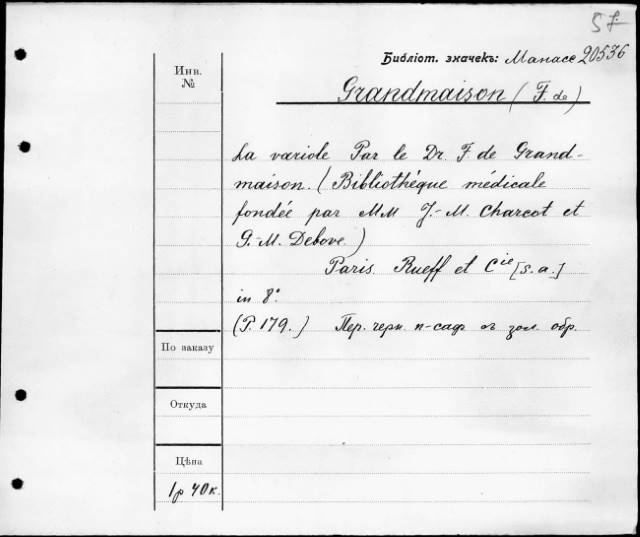 57
Библіот. значекъ: Манасе 20536
Инв. №
Grandmaison (F. de)
La variole Par le Dr. F. de Grand-
maison. (Bibliothéque médicale
fondée par MM J.-M. Charcot et
G.-M. Debove.)
Paris. Rueff et Cie [s. a.]
in 8°.
(P. 179.) Пер. черн. п-саф съ зол. обр.
По заказу
Откуда
Цѣна
1р 40к.